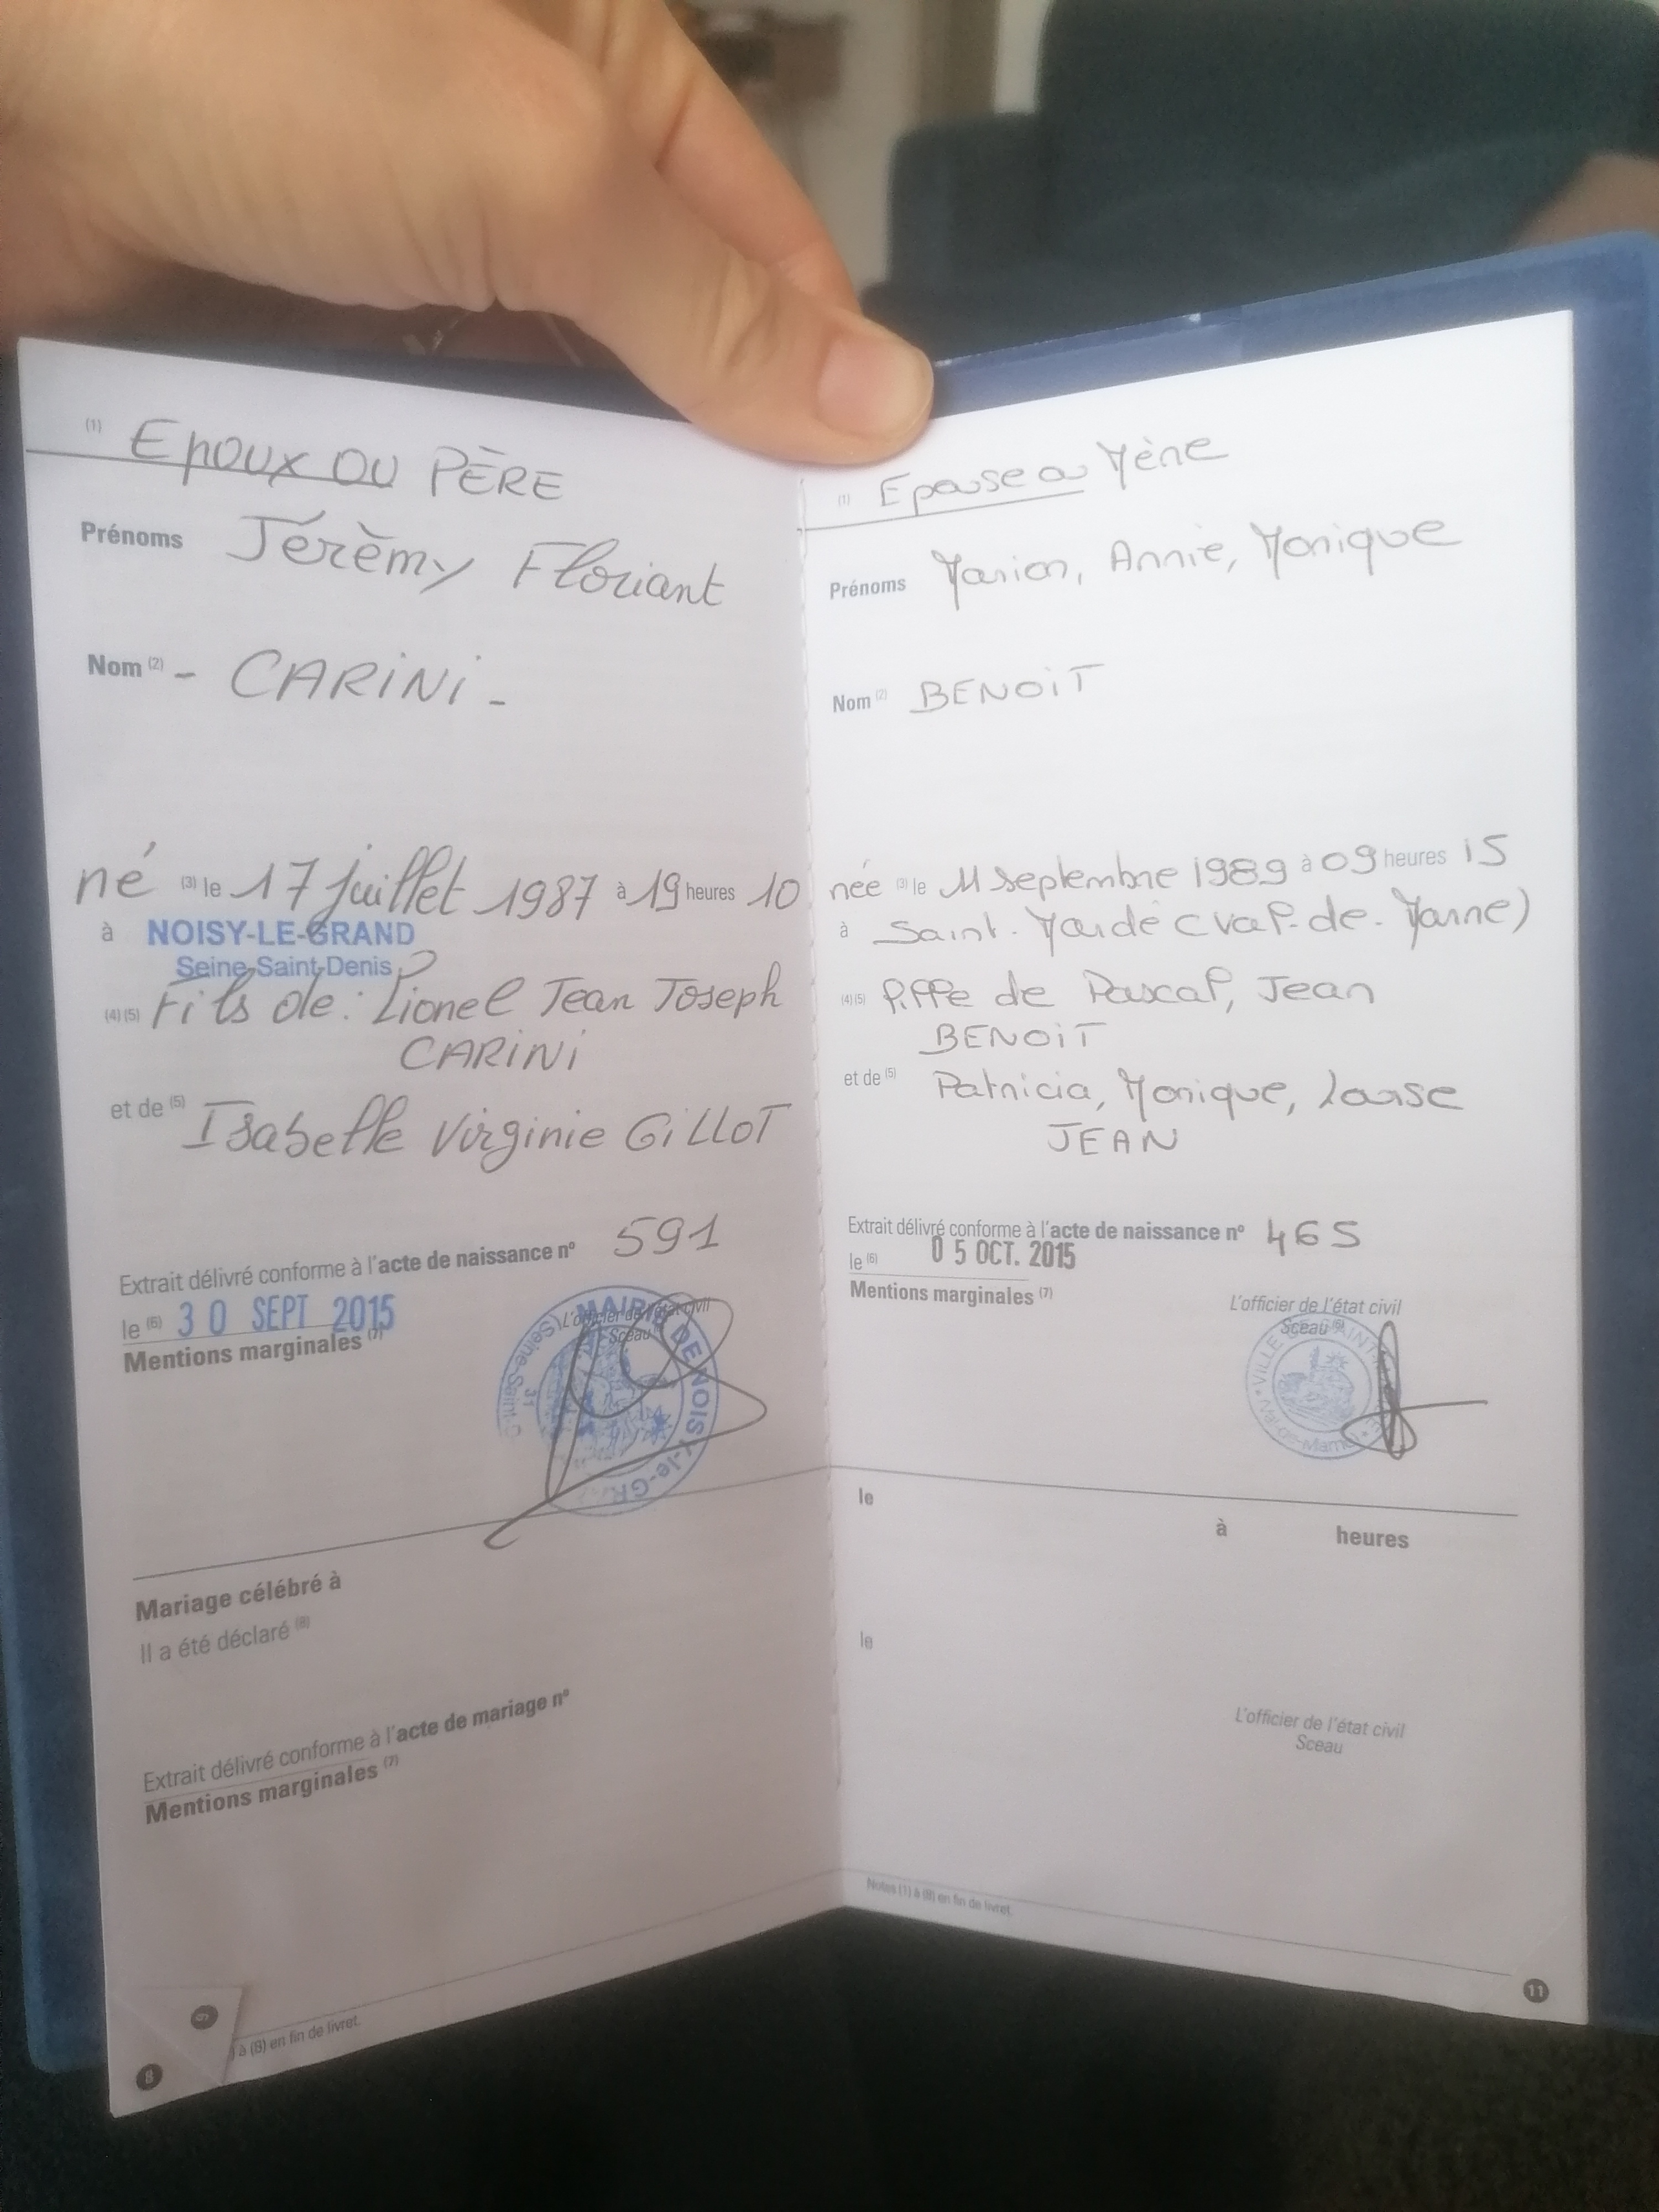 (1) Epoux ou PÈRE
Prénoms Jérèmy Floriant
Nom (2) - CARiNi -
né (3) le 17 juillet 1987 à 19 heures 10
à NOISY-LE-GRAND
Seine-Saint-Denis
(4) (5) Fils de : Lionel Jean Joseph
CARiNi
et de (5) Isabelle Virginie GiLLOT
Extrait délivré conforme à l'acte de naissance nº 591
le (6) 30 SEPT 2015
L'officier de l'état civil
Sceau
MAIRIE DE NOISY-le-GR
(Seine-Saint-D
31
Mentions marginales (7)
Mariage célébré à
Il a été déclaré (8)
Extrait délivré conforme à l'acte de mariage nº
Mentions marginales (7)
à (8) en fin de livret.
9
8
(1) Epouse ou Mère
Prénoms Marion, Annie, Monique
Nom (2) BENOiT
née (3) le 11 septembre 1989 à 09 heures 15
à Saint-Mandé (Val-de-Marne)
(4) (5) fille de Pascal, Jean
BENOiT
et de (5) Patricia, Monique, Louise
JEAN
Extrait délivré conforme à l'acte de naissance nº 465
le (6) 05 OCT. 2015
Mentions marginales (7)
L'officier de l'état civil
Sceau (6)
VILLE DE SAINT
Val-de-Marne
le
à heures
le
L'officier de l'état civil
Sceau
Notes (1) à (8) en fin de livret.
11